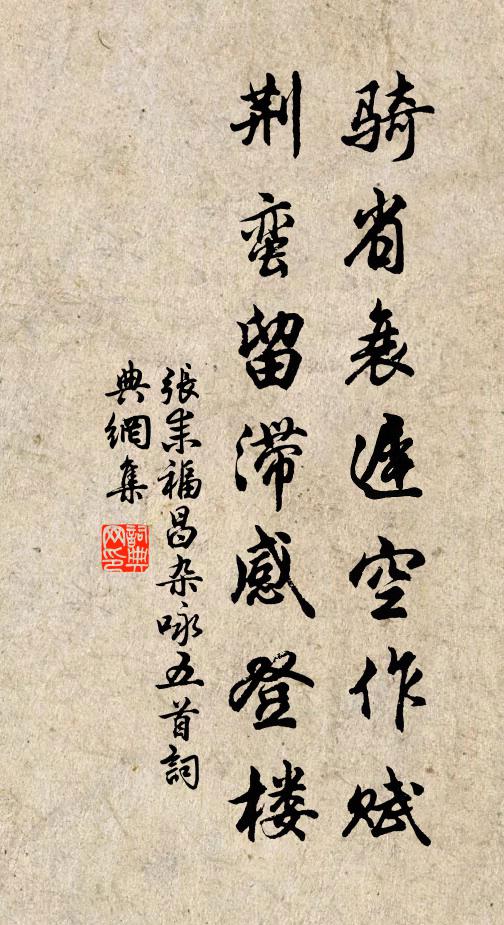 骑省衰遲空作赋
荆蛮留滞感登楼
張耒福昌杂咏五首詞
典網集
詞典
网印